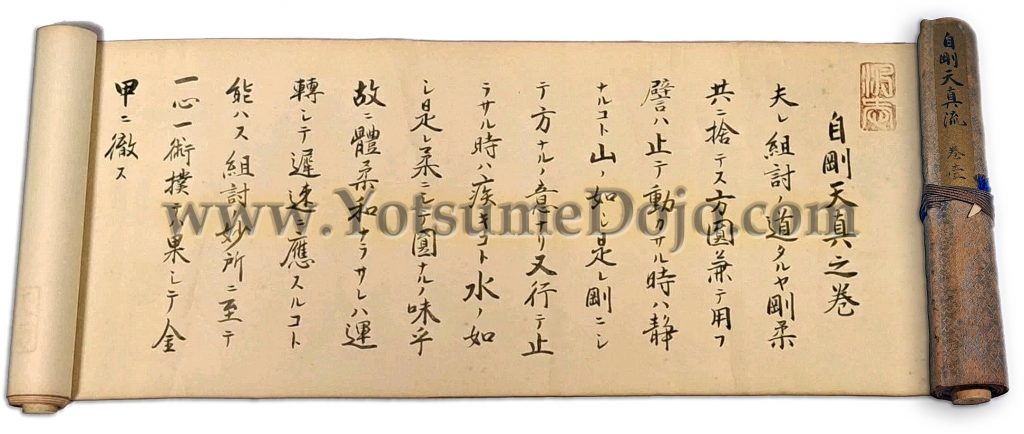 自剛天真流 巻壱
自剛天真之巻
夫レ組討ノ道タルヤ剛柔
共ニ捨テス方圓兼テ用フ
譬ハ止テ動カサル時ハ静
ナルコト山ノ如シ是レ剛ニシ
テ方ナルノ意ナリ又行テ止
ラサル時ハ疾キコト水ノ如
シ是レ柔ニシテ圓ナル味乎
故ニ體柔和ナラサレハ運
轉シテ遅速ニ應スルコト
能ハス組討ノ妙所ニ至テ
一心一術撲テハ果シテ金
甲ニ徹ス
www.YotsumeDojo.com